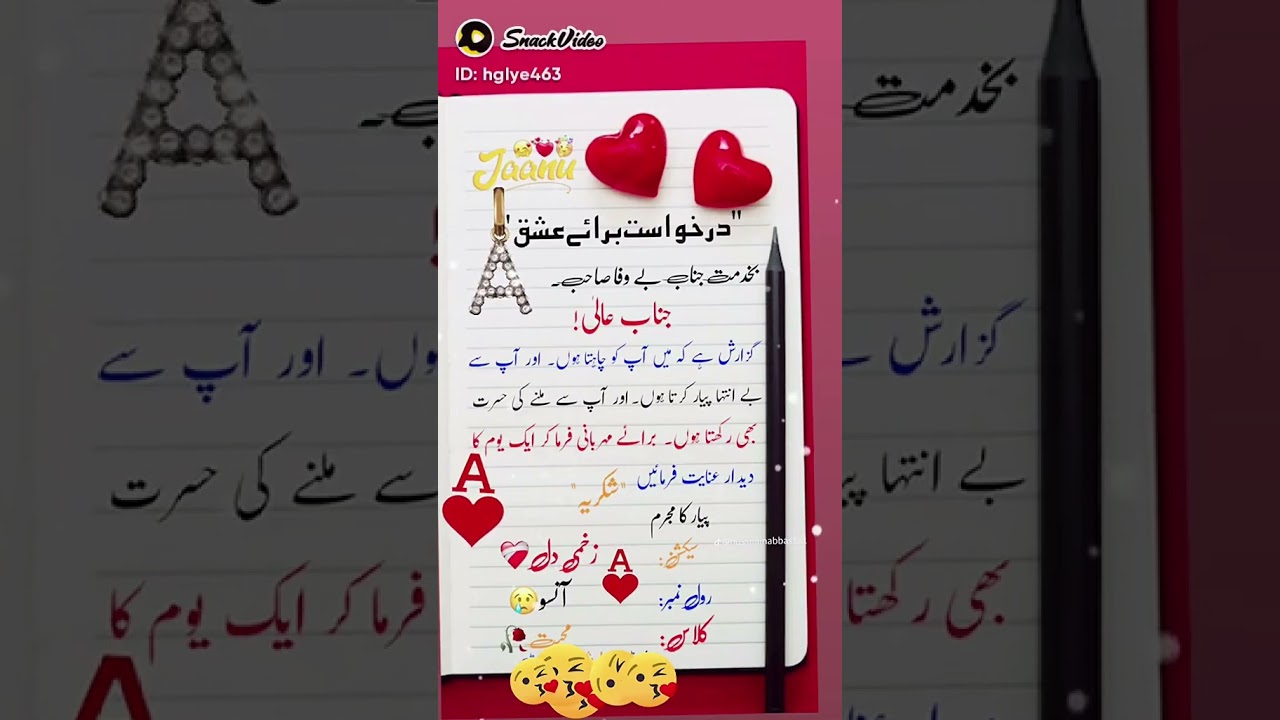 SnackVideo
ID: hglye463
Jaanu
"درخواست برائے عشق"
بخدمت جناب بے وفا صاحب۔
جناب عالیٰ!
گزارش ہے کہ میں آپ کو چاہتا ہوں۔ اور آپ سے
بے انتہا پیار کرتا ہوں۔ اور آپ سے ملنے کی حسرت
بھی رکھتا ہوں۔ برائے مہربانی فرما کر ایک یوم کا
دیدار عنایت فرمائیں "شکریہ"
پیار کا مجرم
سیکشن: زخمی دل
رول نمبر: آنسو
کلاس: محبت
A
A
A